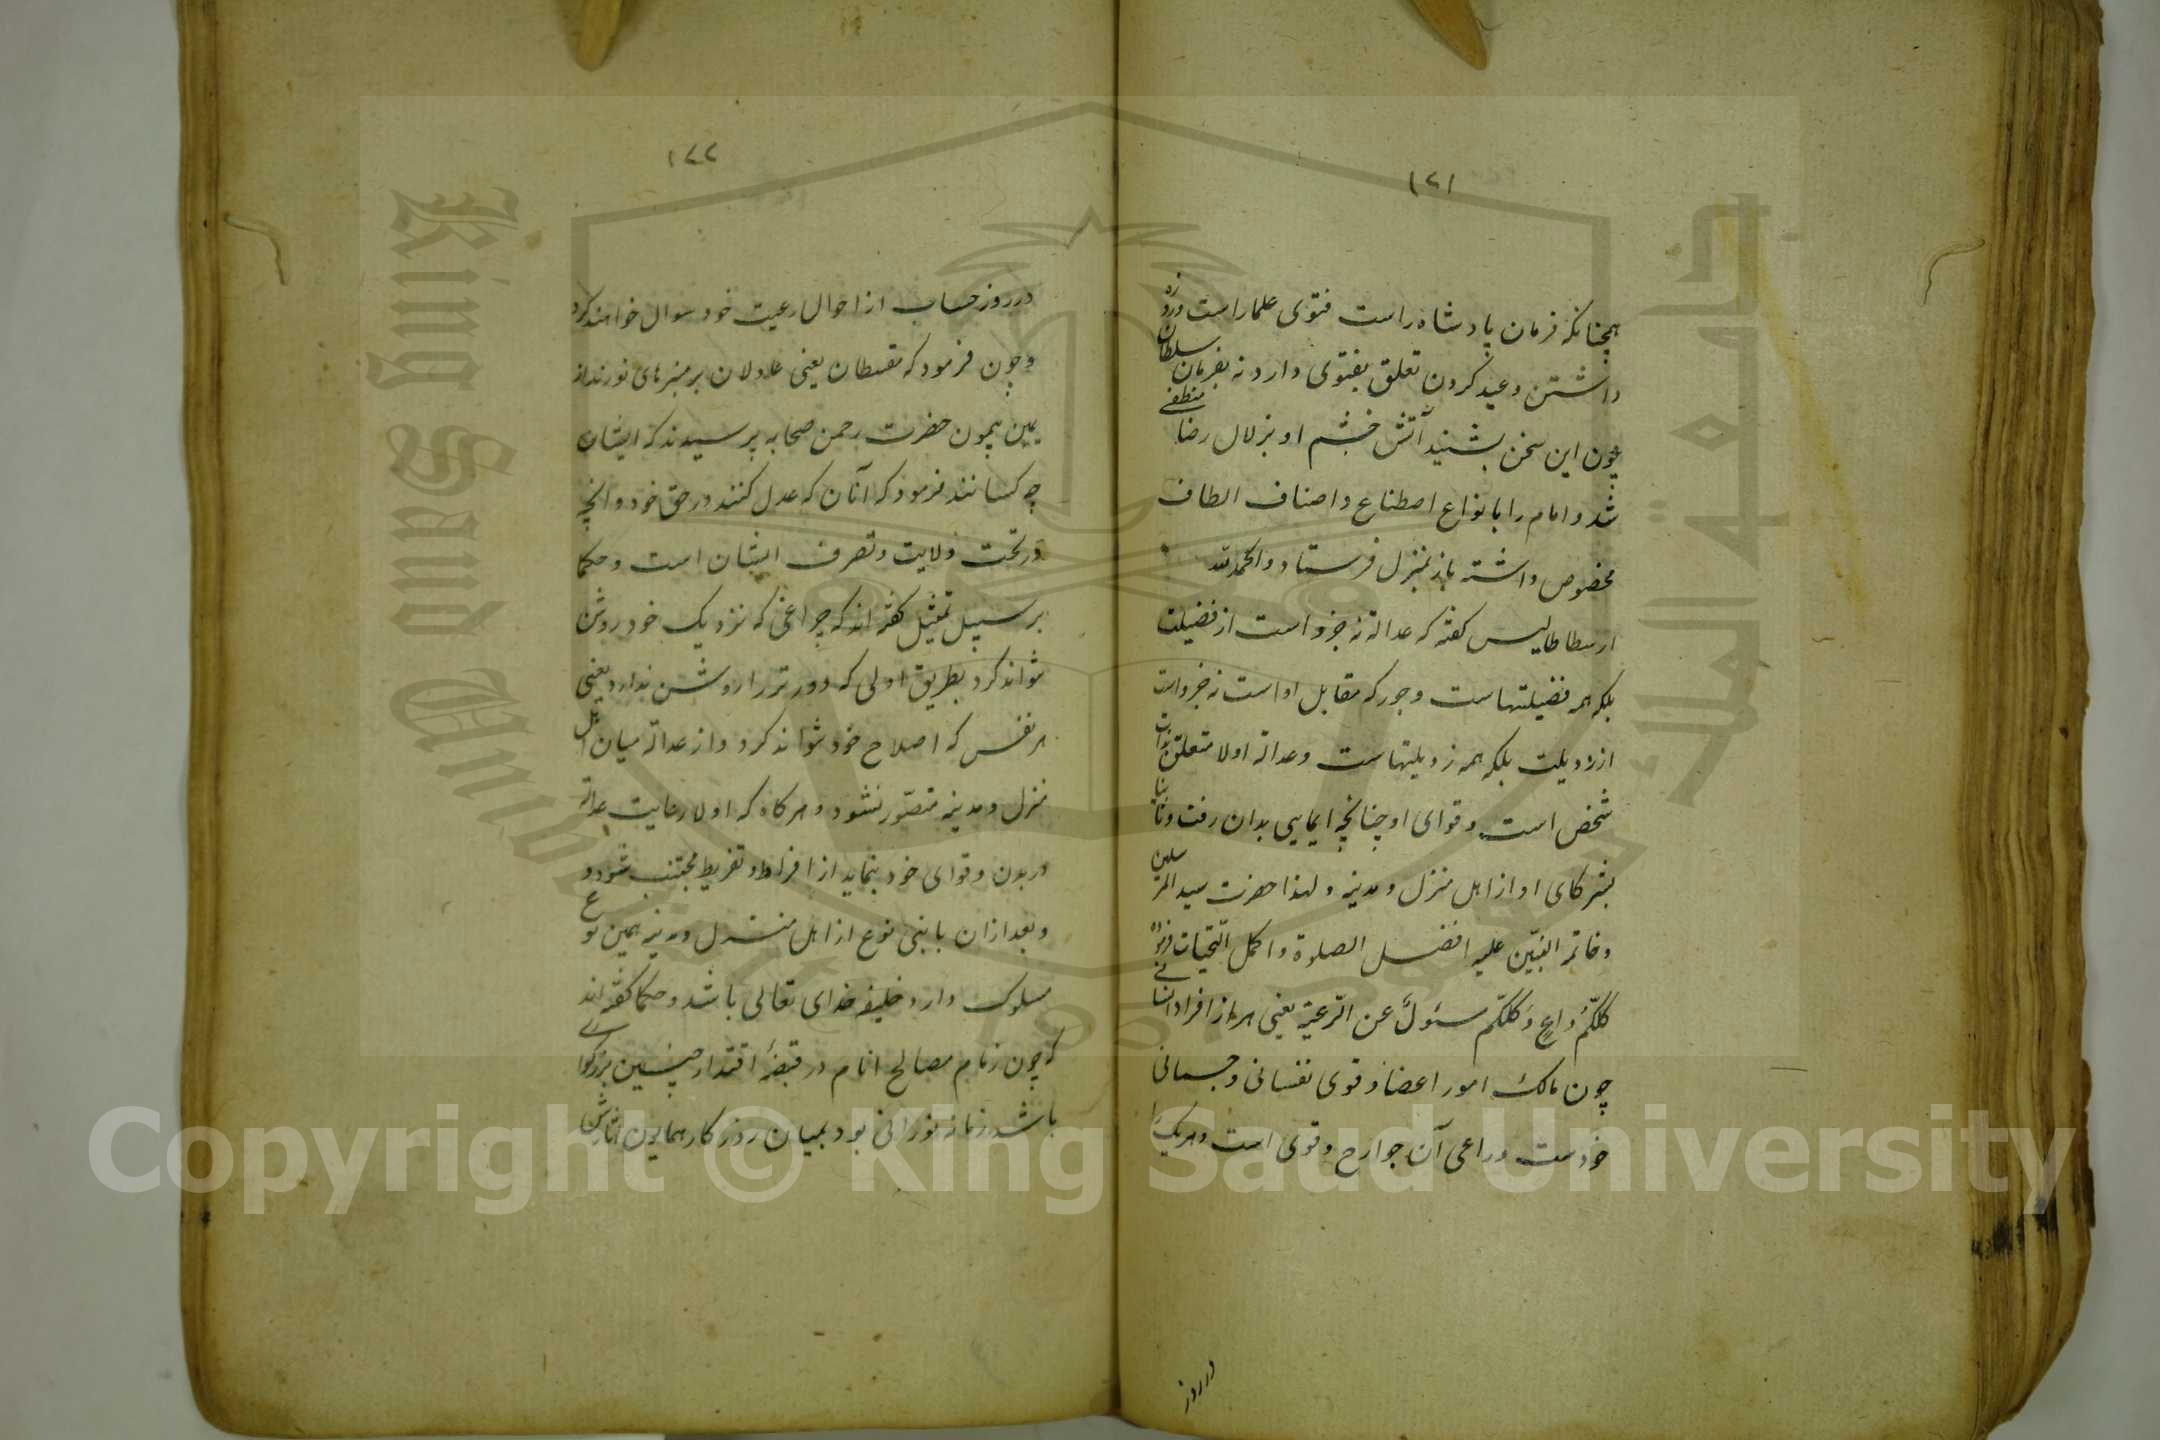 ١٢١
همچنانکه فرمان پادشاه راست فتوی علما راست و روزه
داشتن و عید کردن تعلق بفتوی دارد نه بفرمان سلطان
چون این سخن بشنید آتش خشم او بزلال رضا منطفی
شد و امام را بانواع اصطناع و اصناف الطاف
مخصوص داشته باز بمنزل فرستاد والحمد لله
ارسطاطالیس کفته که عدالة نه جزو است از فضیلت
بلکه همه فضیلتهاست و جور که مقابل اواست نه جزو است
از رذیلت بلکه همه رذیلتهاست وعدالة اولا متعلق بذات
شخص است وقوای او چنانچه ایمایی بدان رفت وثانیا
بشرکای او از اهل منزل ومدینه ولهذا حضرت سید المرسلین
وخاتم النبیّین علیه افضل الصلوة واکمل التحیات فرموده
کلکم راعٍ وکلکم مسئولٌ عن الرّعیّة یعنی هر از افراد انسانی
چون مالک امور اعضا وقوی نفسانی وجسمانی
خودست وراعی آن جوارح وقوی است وهر یک را
در روز
١٢٢
در روز حساب از احوال رعیت خود سوال خواهند کرد
وچون فرمود که مقسطان یعنی عادلان بر منبرهای نورند از
یمین بیچون حضرت رحمن صحابه پرسیدند که ایشان
چه کسانند فرمود که آنان که عدل کنند در حق خود وانچه
در تحت ولایت وتصرف ایشان است وحکما
بر سبیل تمثیل کفته اند که چراغی که نزدیک خود روشن
نتواند کرد بطریق اولی که دورتر را روشن ندارد یعنی
هر نفس که اصلاح خود نتواند کرد واز عدالة میان اهل
منزل ومدینه متصّور نشود وهرکاه که اولا رعایت عدالة
در بدن وقوای خود بنماید از افراط وتفریط مجتنب شود و
وبعد ازان بابنی نوع از اهل منزل ومدینه همین نوع
سلوک دارد خلیفه خدای تعالی باشد وحکما کفته اند
که چون زمام مصالح انام در قبضهٔ اقتدار چنین بزرکواری
باشد زمانه نورانی بود بمیان روزکار همایون آثارش
King Saud University
Copyright © King Saud University
جامعة الملك سعود
1957